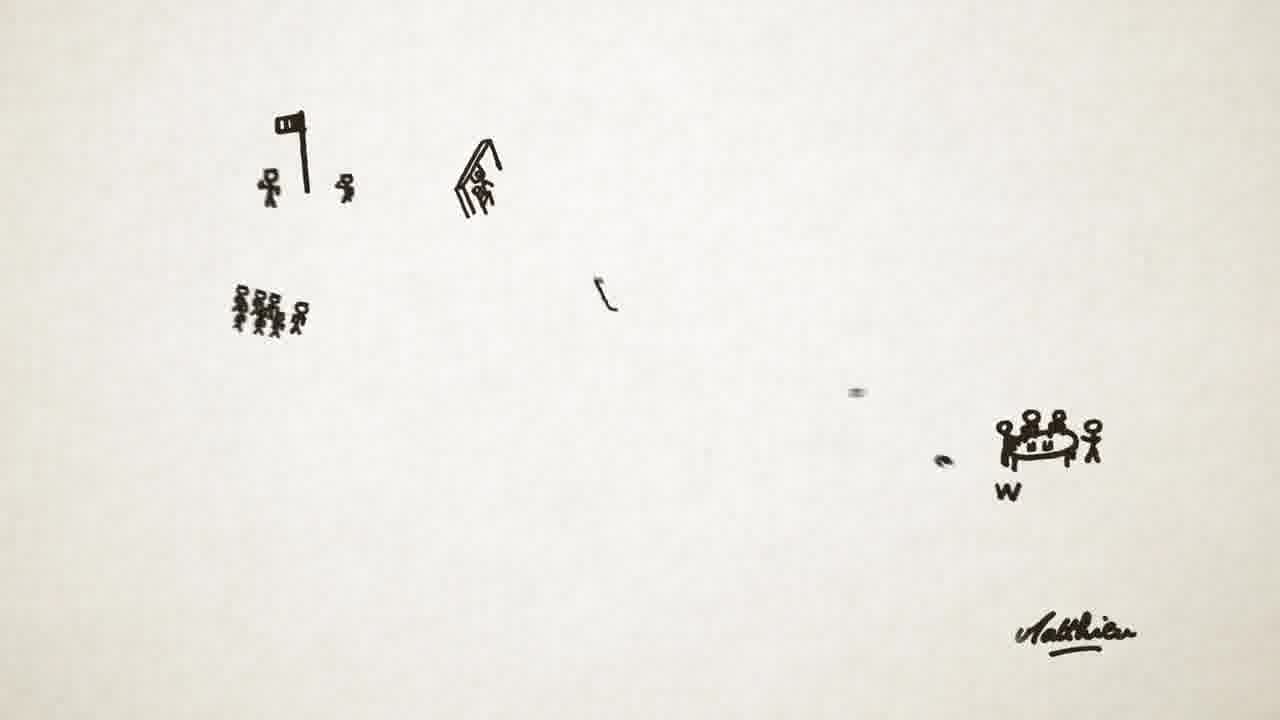 W
Matthieu